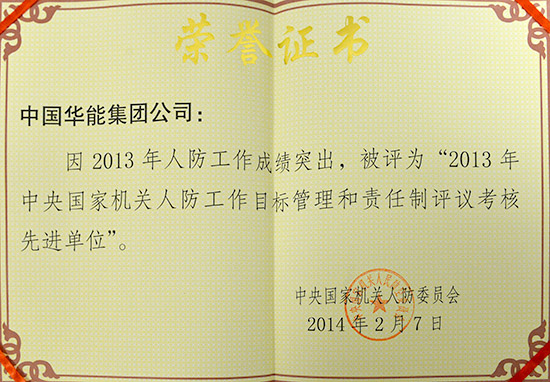 荣誉证书
中国华能集团公司：
因 2013 年人防工作成绩突出，被评为 “2013 年
中央国家机关人防工作目标管理和责任制评议考核
先进单位”。
中央国家机关人防委员会
2014 年 2 月 7 日